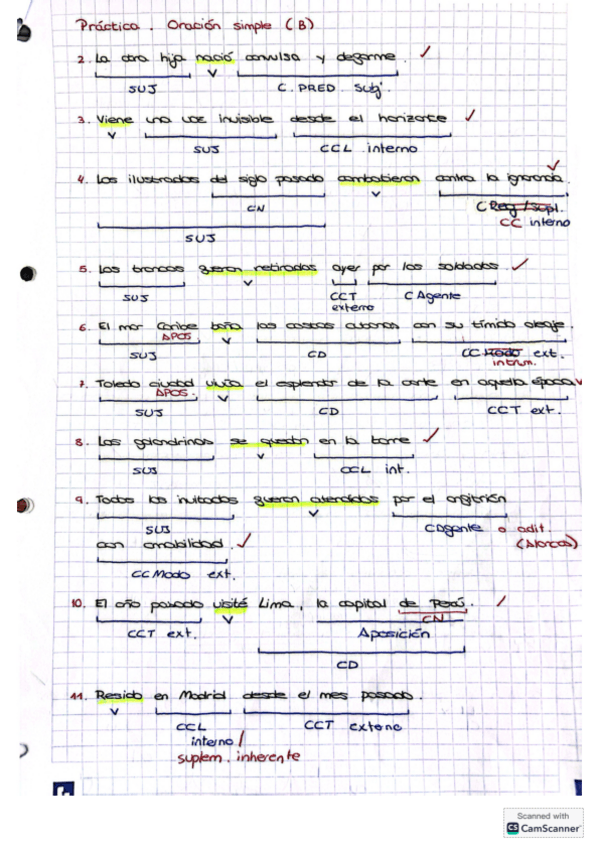 Práctica. Oración simple (B)
2. La otra hija nació convulsa y deforme. ✓
SUJ V C. PRED. Suj.
3. Viene una voz invisible desde el horizonte ✓
V SUJ CCL interno
4. Los ilustrados del siglo pasado combatieron contra la ignorancia. ✓
CN V C Reg / supl.
CC interno
SUJ
5. Los troncos fueron retirados ayer por los soldados. ✓
SUJ V CCT externo C Agente
6. El mar Caribe baña las costas cubanas con su tímido oleaje.
APOS
SUJ V CD CC Modo ext.
instrum.
7. Toledo ciudad vivía el esplendor de la corte en aquella época ✓
APOS.
SUJ V CD CCT ext.
8. Las golondrinas se quedan en la torre ✓
SUJ V CCL int.
9. Todos los invitados fueron atendidos por el anfitrión
SUJ V CAgente o adit.
(Alarcos)
con amabilidad. ✓
CC Modo ext.
10. El año pasado visité Lima, la capital de Perú. /
CN
CCT ext. V Aposición
CD
11. Resido en Madrid desde el mes pasado.
V CCL CCT externo
interno /
suplem. inherente
Scanned with
CS CamScanner